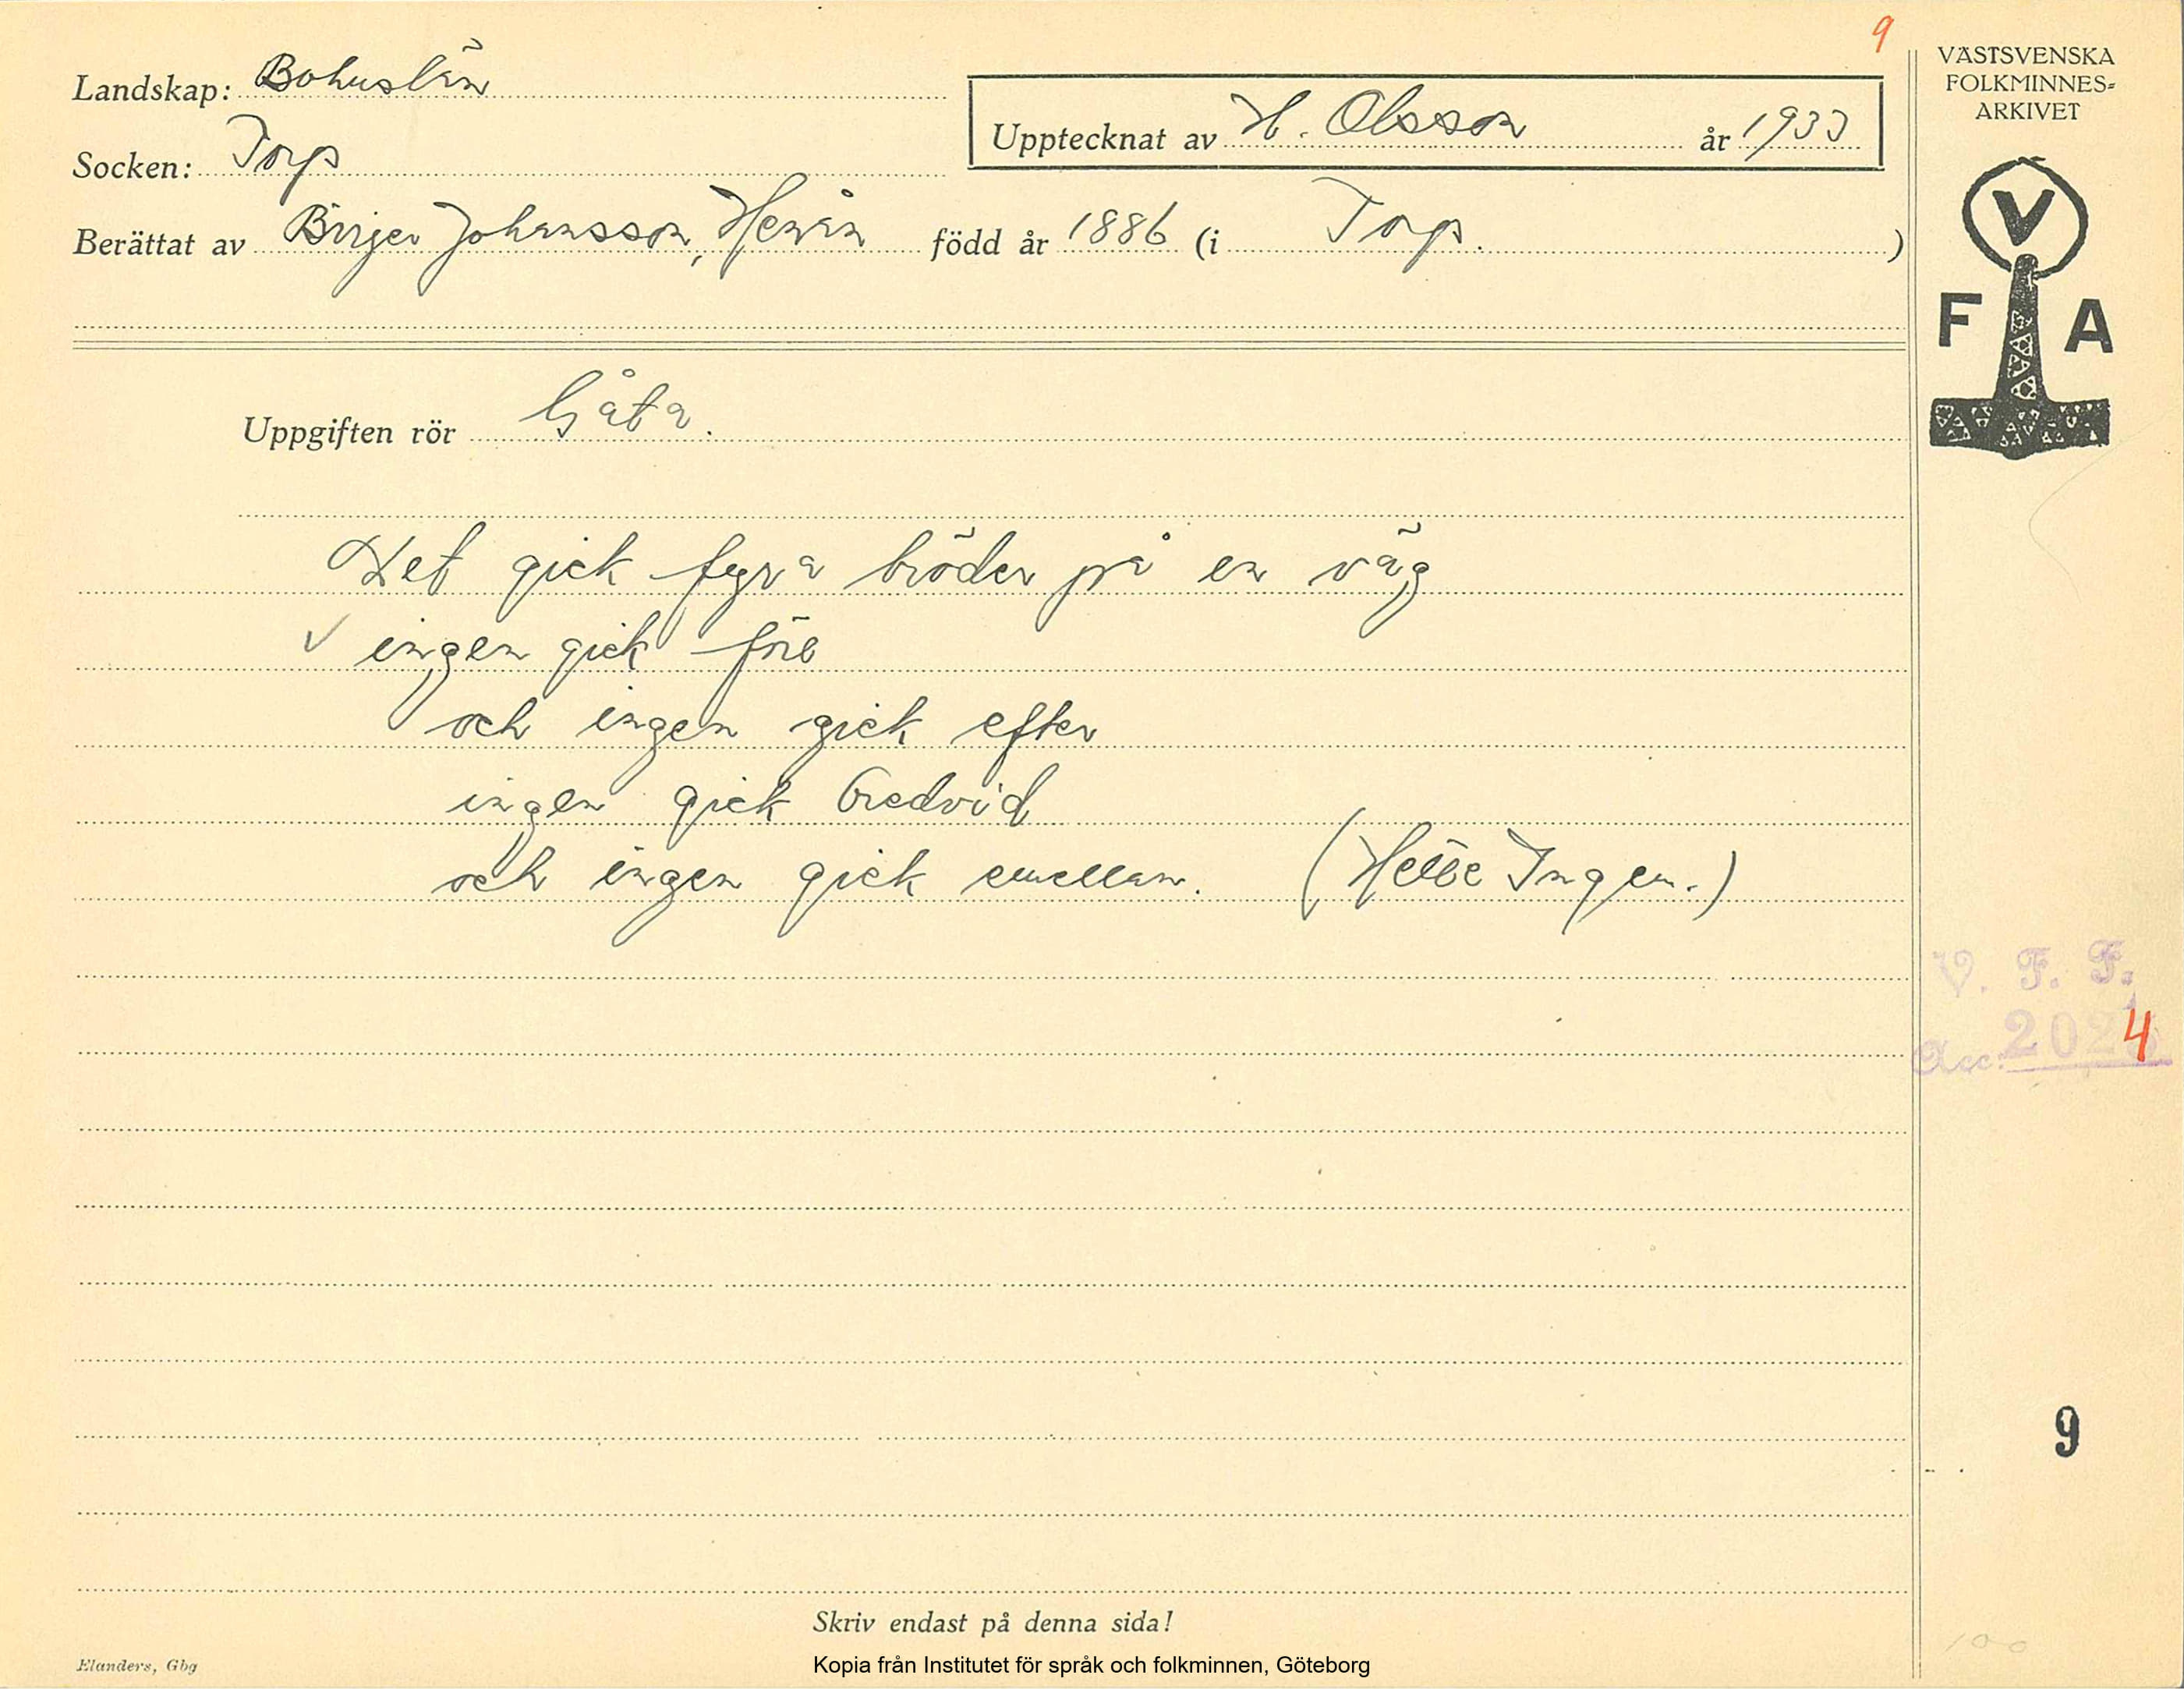 9
Landskap: Bohuslän
Socken: Torp
Upptecknat av H. Olsson år 1933
Berättat av Birger Johansson, Henån född år 1886 (i Torp.)
VÄSTSVENSKA
FOLKMINNES-
ARKIVET
V
F A
Uppgiften rör Gåta.
Det gick fyra bröder på en väg
√ ingen gick före
och ingen gick efter
ingen gick bredvid
och ingen gick emellan. (Hette Ingen.)
V. F. F.
Acc. 2024
9
100
Skriv endast på denna sida!
Elanders, Gbg
Kopia från Institutet för språk och folkminnen, Göteborg